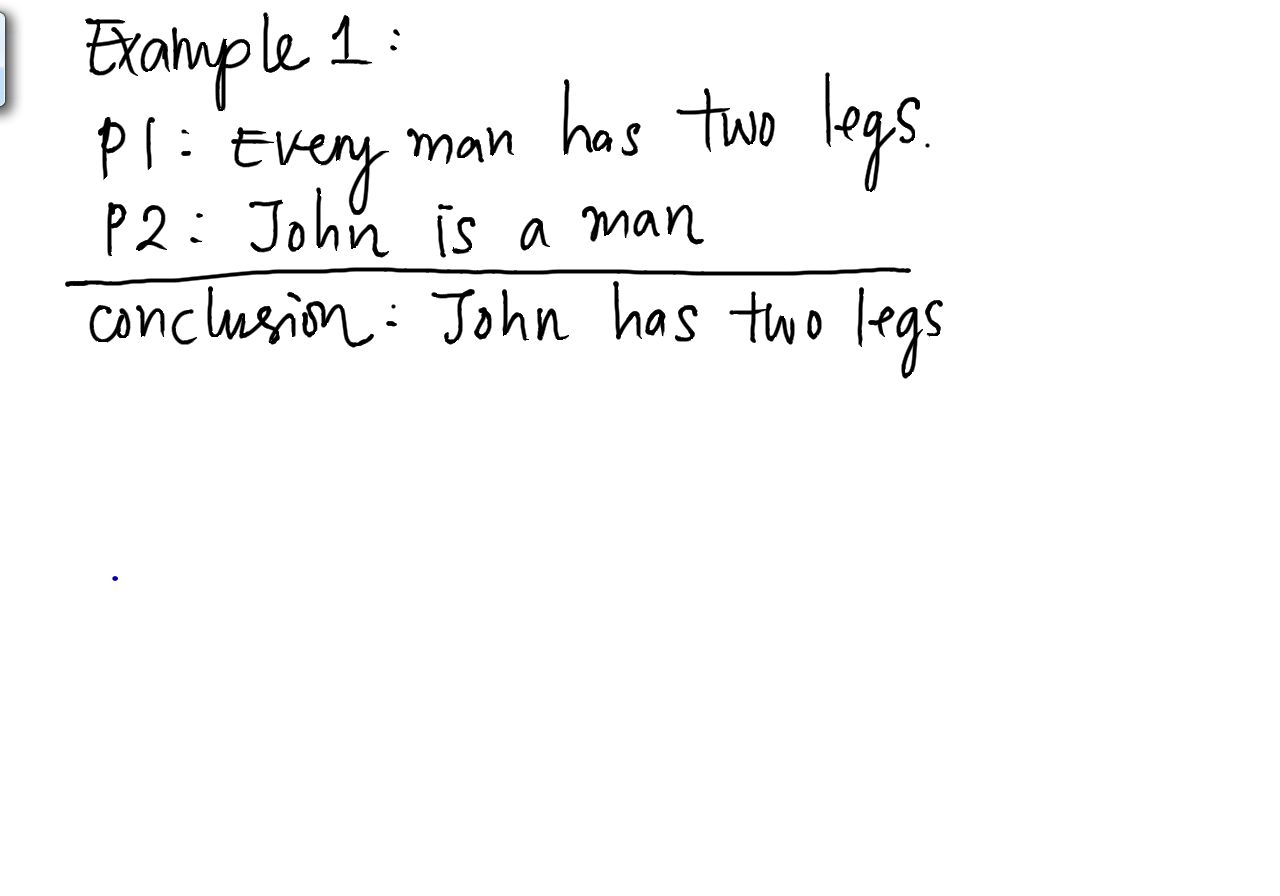 Example 1:
P1: Every man has two legs.
P2: John is a man
conclusion: John has two legs